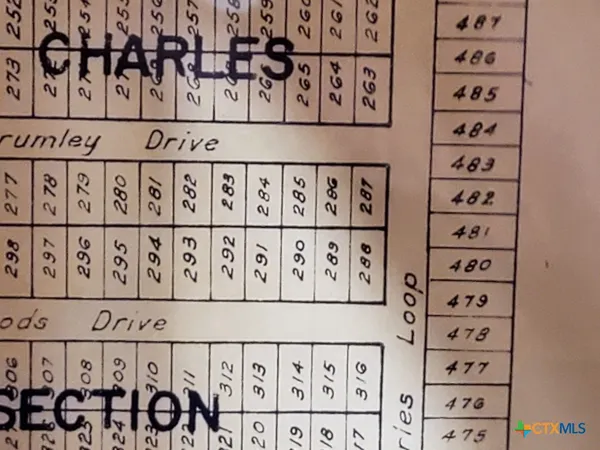 252 254 255 256 257 258 259 260 261 262
CHARLES
273 265 264 263
rumley Drive
277 278 279 280 281 282 283 284 285 286 287
298 297 296 295 294 293 292 291 290 289 288
ods Drive
306 307 308 309 310 311 312 313 314 315 316
SECTION
487
486
485
484
483
482
481
480
479
478
477
476
475
ries Loop
CTXMLS